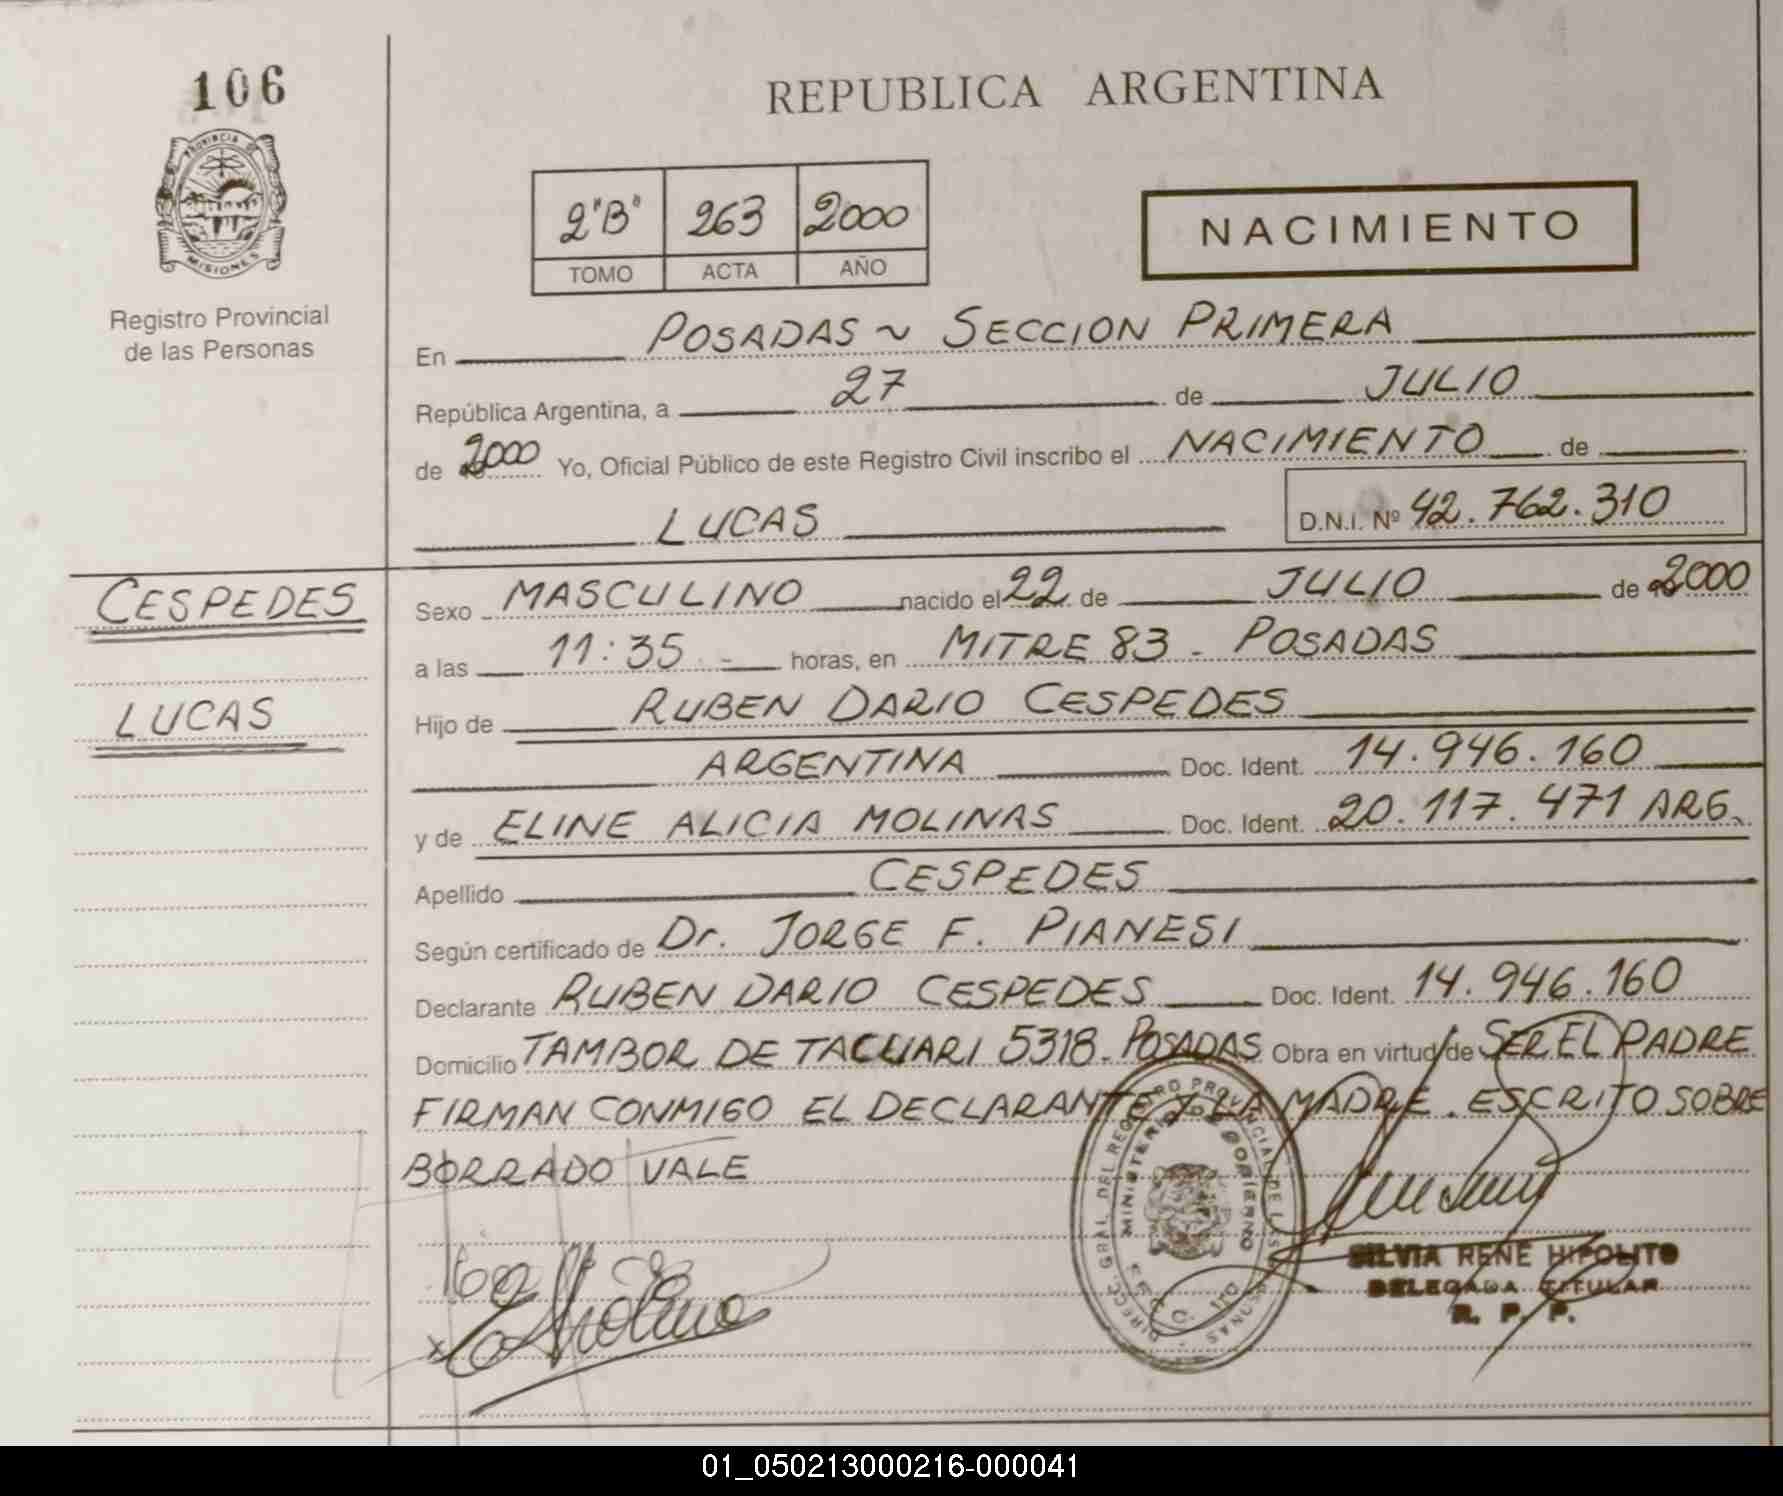 106
REPUBLICA ARGENTINA
PROVINCIA DE
MISIONES
Registro Provincial
de las Personas
2"B" 263 2000
TOMO ACTA AÑO
NACIMIENTO
En POSADAS ~ SECCION PRIMERA
República Argentina, a 27 de JULIO
de 2000 Yo, Oficial Público de este Registro Civil inscribo el NACIMIENTO de
LUCAS D.N.I. Nº 42.762.310
CESPEDES
LUCAS
Sexo MASCULINO nacido el 22 de JULIO de 2000
a las 11:35 - horas, en MITRE 83 - POSADAS
Hijo de RUBEN DARIO CESPEDES
ARGENTINA Doc. Ident. 14.946.160
y de ELINE ALICIA MOLINAS Doc. Ident. 20.117.471 ARG.
Apellido CESPEDES
Según certificado de Dr. JORGE F. PIANESI
Declarante RUBEN DARIO CESPEDES Doc. Ident. 14.946.160
Domicilio TAMBOR DE TACUARI 5318. POSADAS Obra en virtud de SER EL PADRE
FIRMAN CONMIGO EL DECLARANTE Y LA MADRE. ESCRITO SOBRE
BORRADO VALE
DIRECC. GRAL. DEL REGISTRO PROVINCIAL DE LAS PERSONAS
MINISTERIO DE GOBIERNO
SILVIA RENE HIPOLITO
DELEGADA TITULAR
R. P. P.
01_050213000216-000041